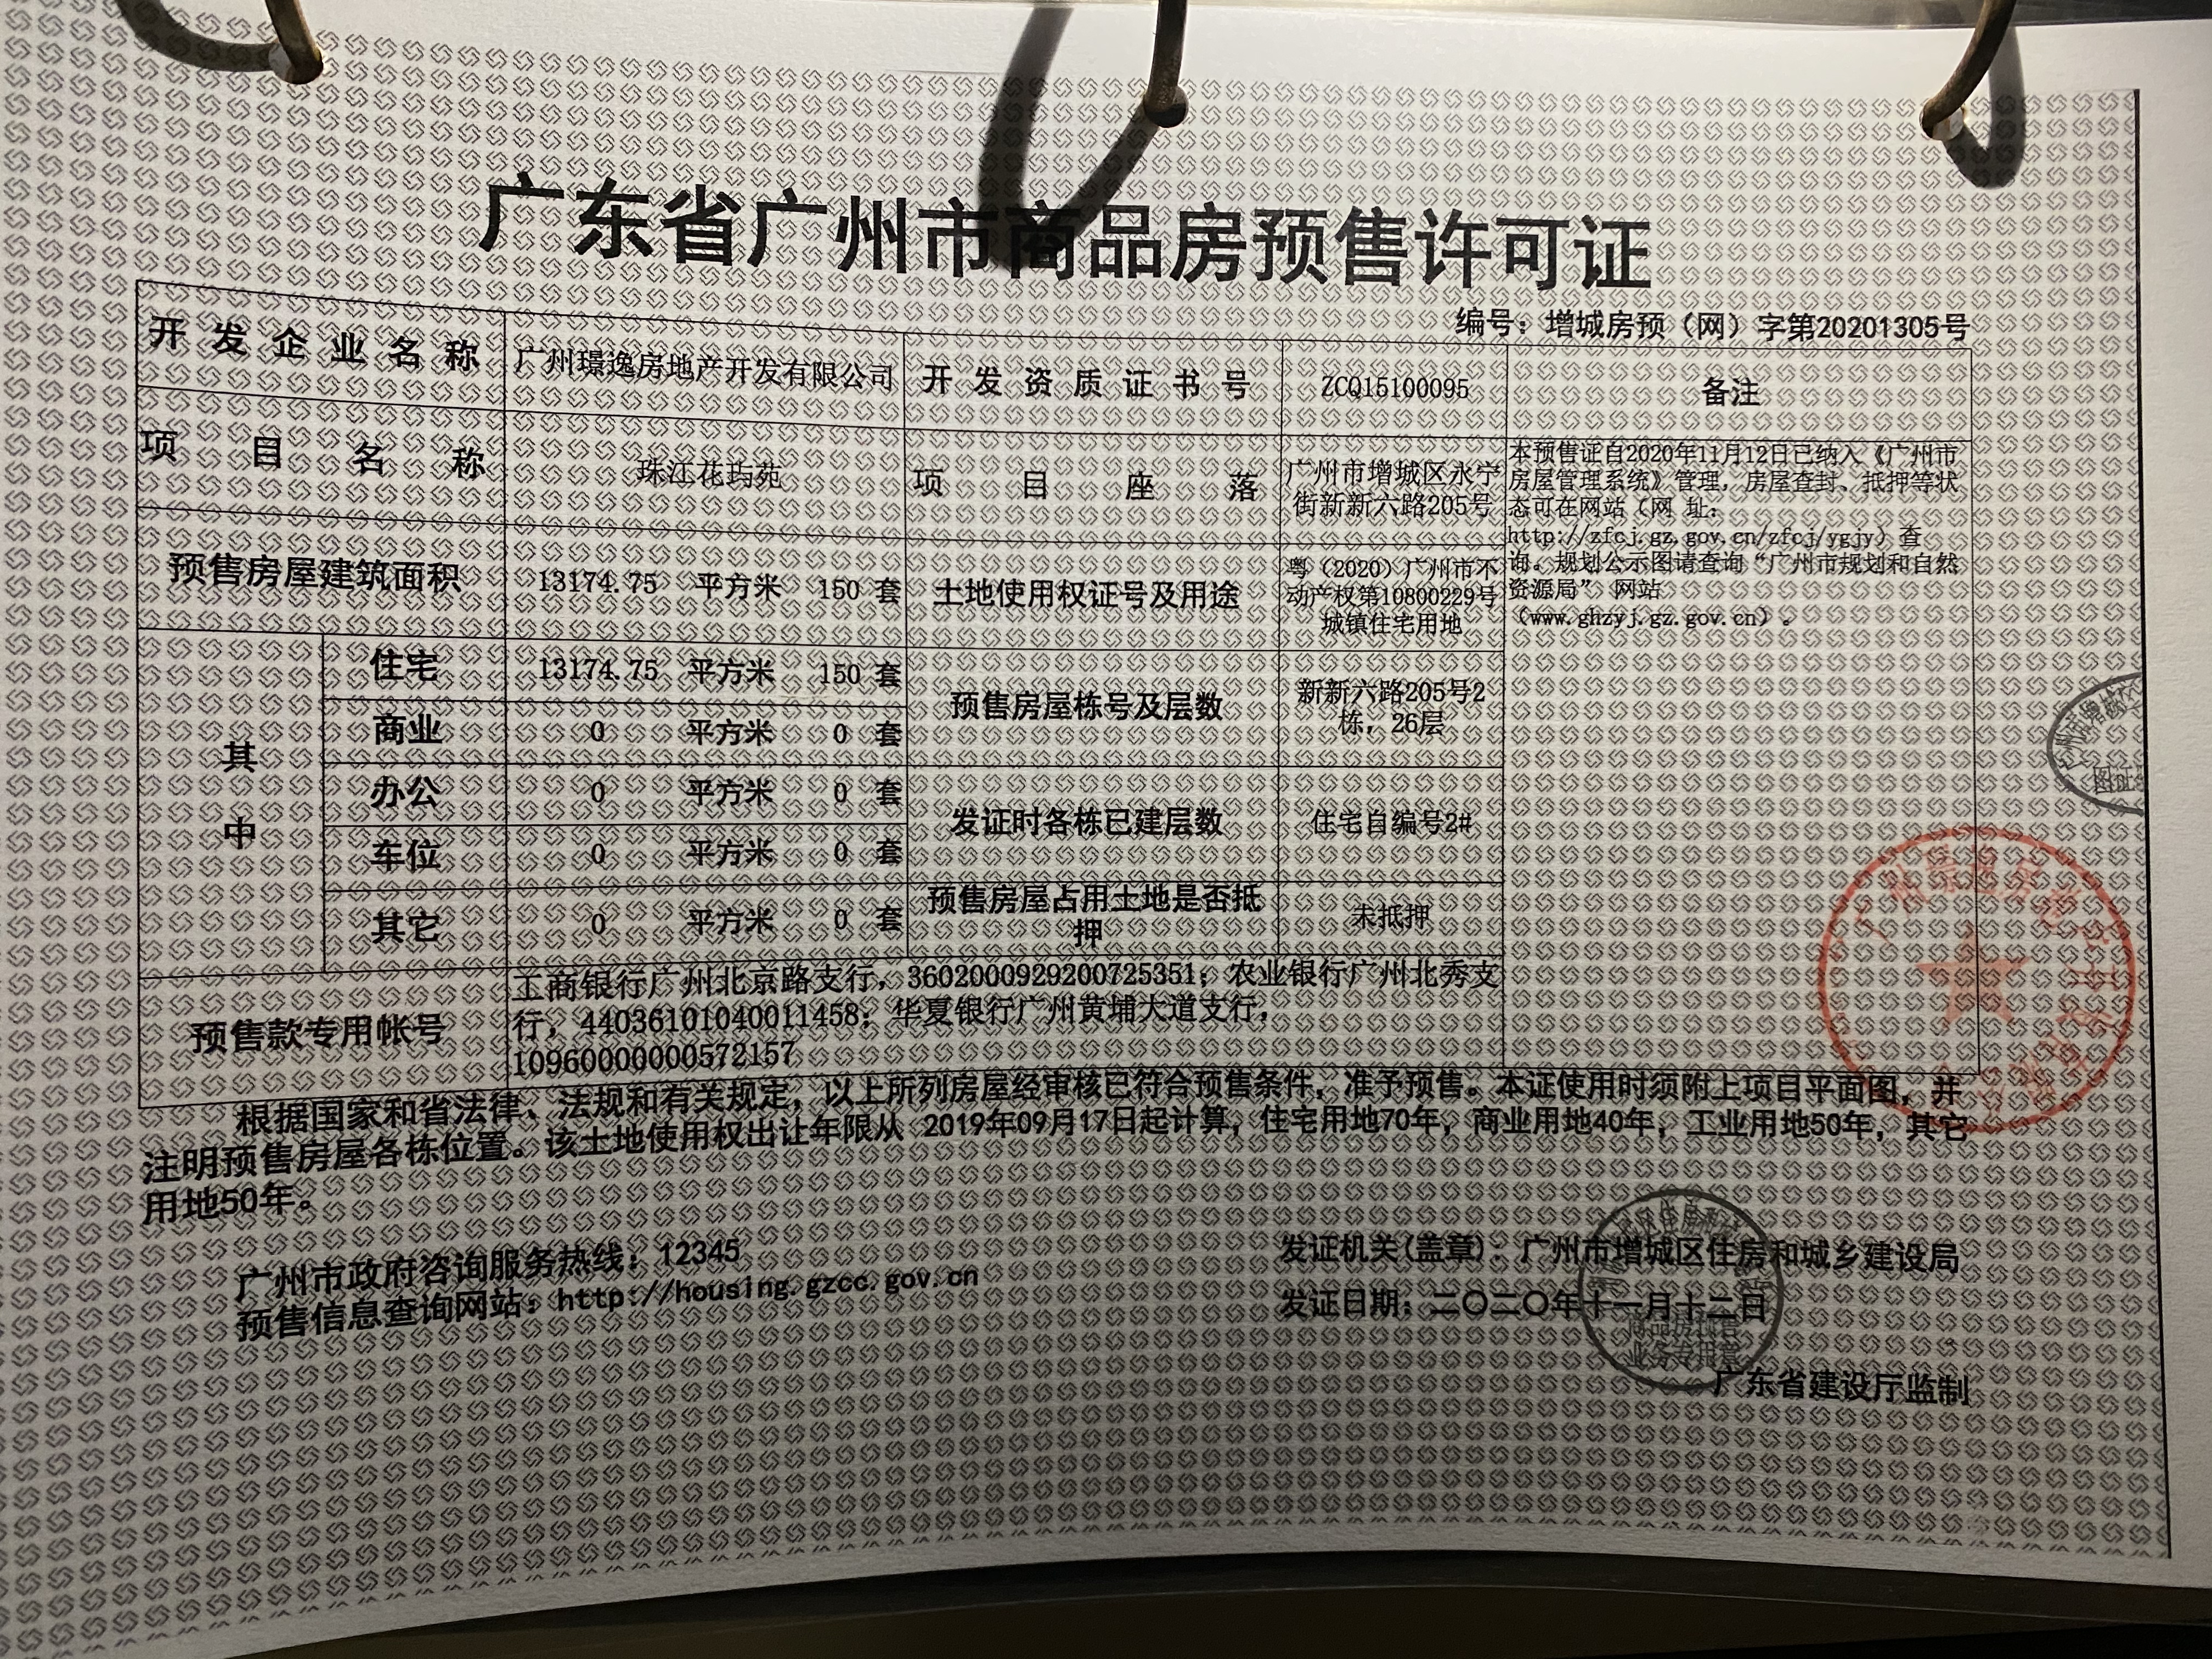 广东省广州市商品房预售许可证
编号：增城房预（网）字第20201305号
开发企业名称 广州璟逸房地产开发有限公司 开发资质证书号 ZCQ15100095 备注
项目名称 珠江花玙苑 项目座落 广州市增城区永宁
街新新六路205号
本预售证自2020年11月12日已纳入《广州市
房屋管理系统》管理，房屋查封、抵押等状
态可在网站（网 址：
http://zfcj.gz.gov.cn/zfcj/ygjy）查
询。规划公示图请查询“广州市规划和自然
资源局” 网站
（www.ghzyj.gz.gov.cn）。
预售房屋建筑面积 13174.75 平方米 150 套 土地使用权证号及用途 粤（2020）广州市不
动产权第10800229号
城镇住宅用地
其中
住宅 13174.75 平方米 150 套
商业 0 平方米 0 套
预售房屋栋号及层数 新新六路205号2
栋，26层
办公 0 平方米 0 套
车位 0 平方米 0 套
发证时各栋已建层数 住宅自编号2#
其它 0 平方米 0 套
预售房屋占用土地是否抵
押 未抵押
预售款专用帐号 工商银行广州北京路支行，3602000929200725351；农业银行广州北秀支
行，44036101040011458；华夏银行广州黄埔大道支行，
10960000000572157
根据国家和省法律、法规和有关规定，以上所列房屋经审核已符合预售条件，准予预售。本证使用时须附上项目平面图，并
注明预售房屋各栋位置。该土地使用权出让年限从 2019年09月17日起计算，住宅用地70年，商业用地40年，工业用地50年，其它
用地50年。
广州市政府咨询服务热线：12345
预售信息查询网站：http://housing.gzcc.gov.cn
发证机关(盖章)：广州市增城区住房和城乡建设局
发证日期：二〇二〇年十一月十二日
商品房预售
业务专用章
广东省建设厅监制